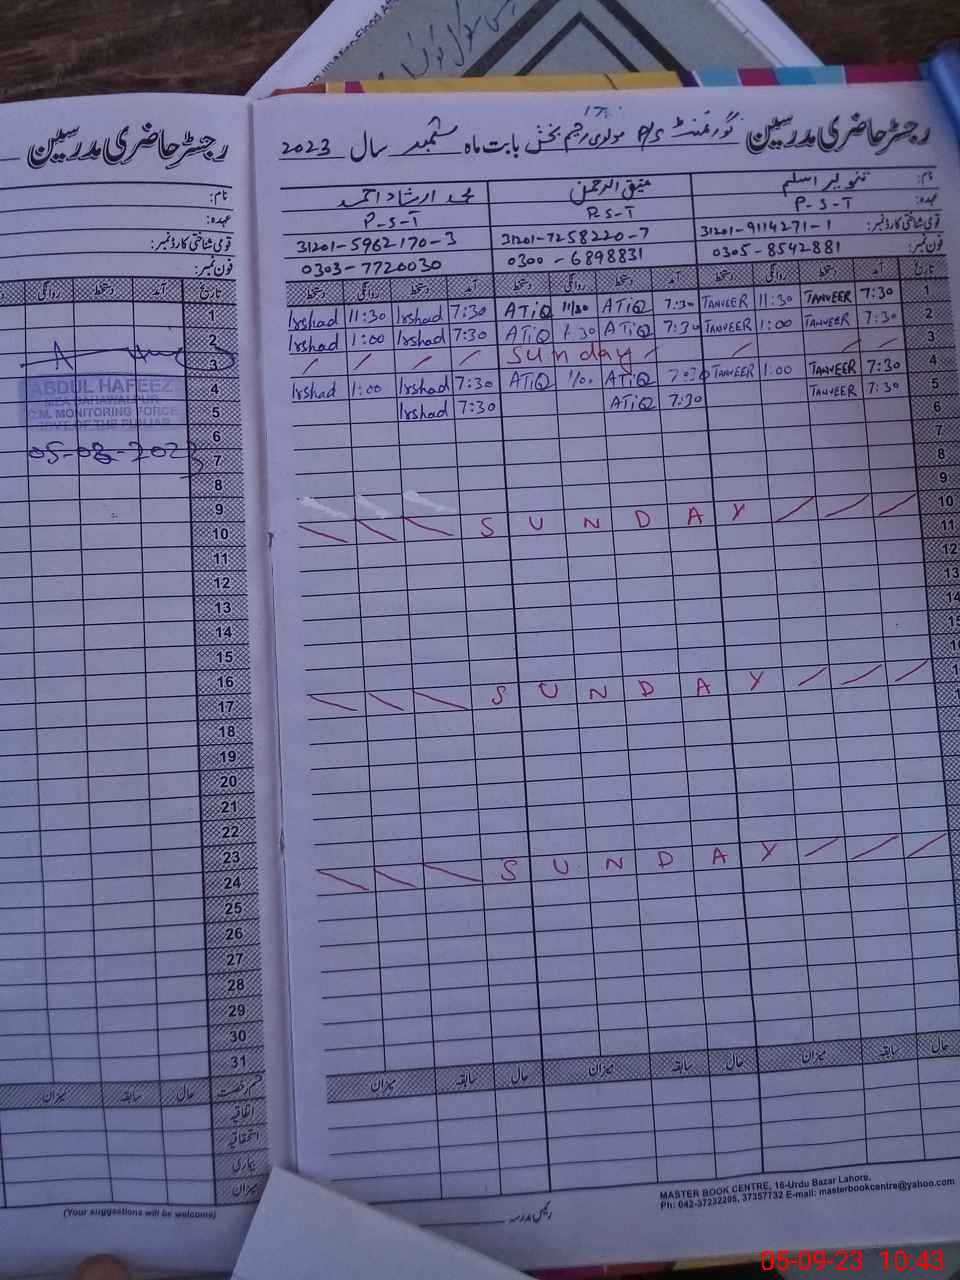 رجسٹر حاضری مدرسین گورنمنٹ P/S مولوی رحیم بخش بابت ماہ ستمبر سال 2023
نام: تنویر اسلم عتیق الرحمن محمد ارشاد احمد
عہدہ: P-S-T P.S-T P-S-T
قومی شناختی کارڈ نمبر: 31201-9114271-1 31201-7258220-7 31201-5962170-3
فون نمبر: 0305-8542881 0300-6898831 0303-7720030
تاریخ آمد دستخط روانگی دستخط آمد دستخط روانگی دستخط آمد دستخط روانگی دستخط
1 7:30 TANVEER 11:30 TANVEER 7:30 ATiQ 11/30 ATiQ 7:30 Irshad 11:30 Irshad
2 7:30 TANVEER 1:00 TANVEER 7:30 ATiQ ATiQ 7:30 Irshad 1:00 Irshad
3 Sunday
4 7:30 TANVEER 1:00 TANVEER 7:30 ATiQ ATiQ 7:30 Irshad 1:00 Irshad
5 7:30 TANVEER 7:30 ATiQ 7:30 Irshad
6
7
8
9
10 SUNDAY
11
12
13
14
15
16
17 SUNDAY
18
19
20
21
22
23
24 SUNDAY
25
26
27
28
29
30
31
حال سابقہ میزان حال سابقہ میزان حال سابقہ میزان
رئیس مدرسہ
MASTER BOOK CENTRE, 16-Urdu Bazar Lahore,
Ph: 042-37232205, 37357732 E-mail: masterbookcentre@yahoo.com
رجسٹر حاضری مدرسین
نام:
عہدہ:
قومی شناختی کارڈ نمبر:
فون نمبر:
تاریخ آمد دستخط روانگی
ABDUL HAFEEZ
MEA BAHAWALPUR
C.M. MONITORING FORCE
GOVT. OF THE PUNJAB
حال سابقہ میزان
اتفاقیہ
استحقاقیہ
بیماری
میزان
(Your suggestions will be welcome)
05-09-23 10:43